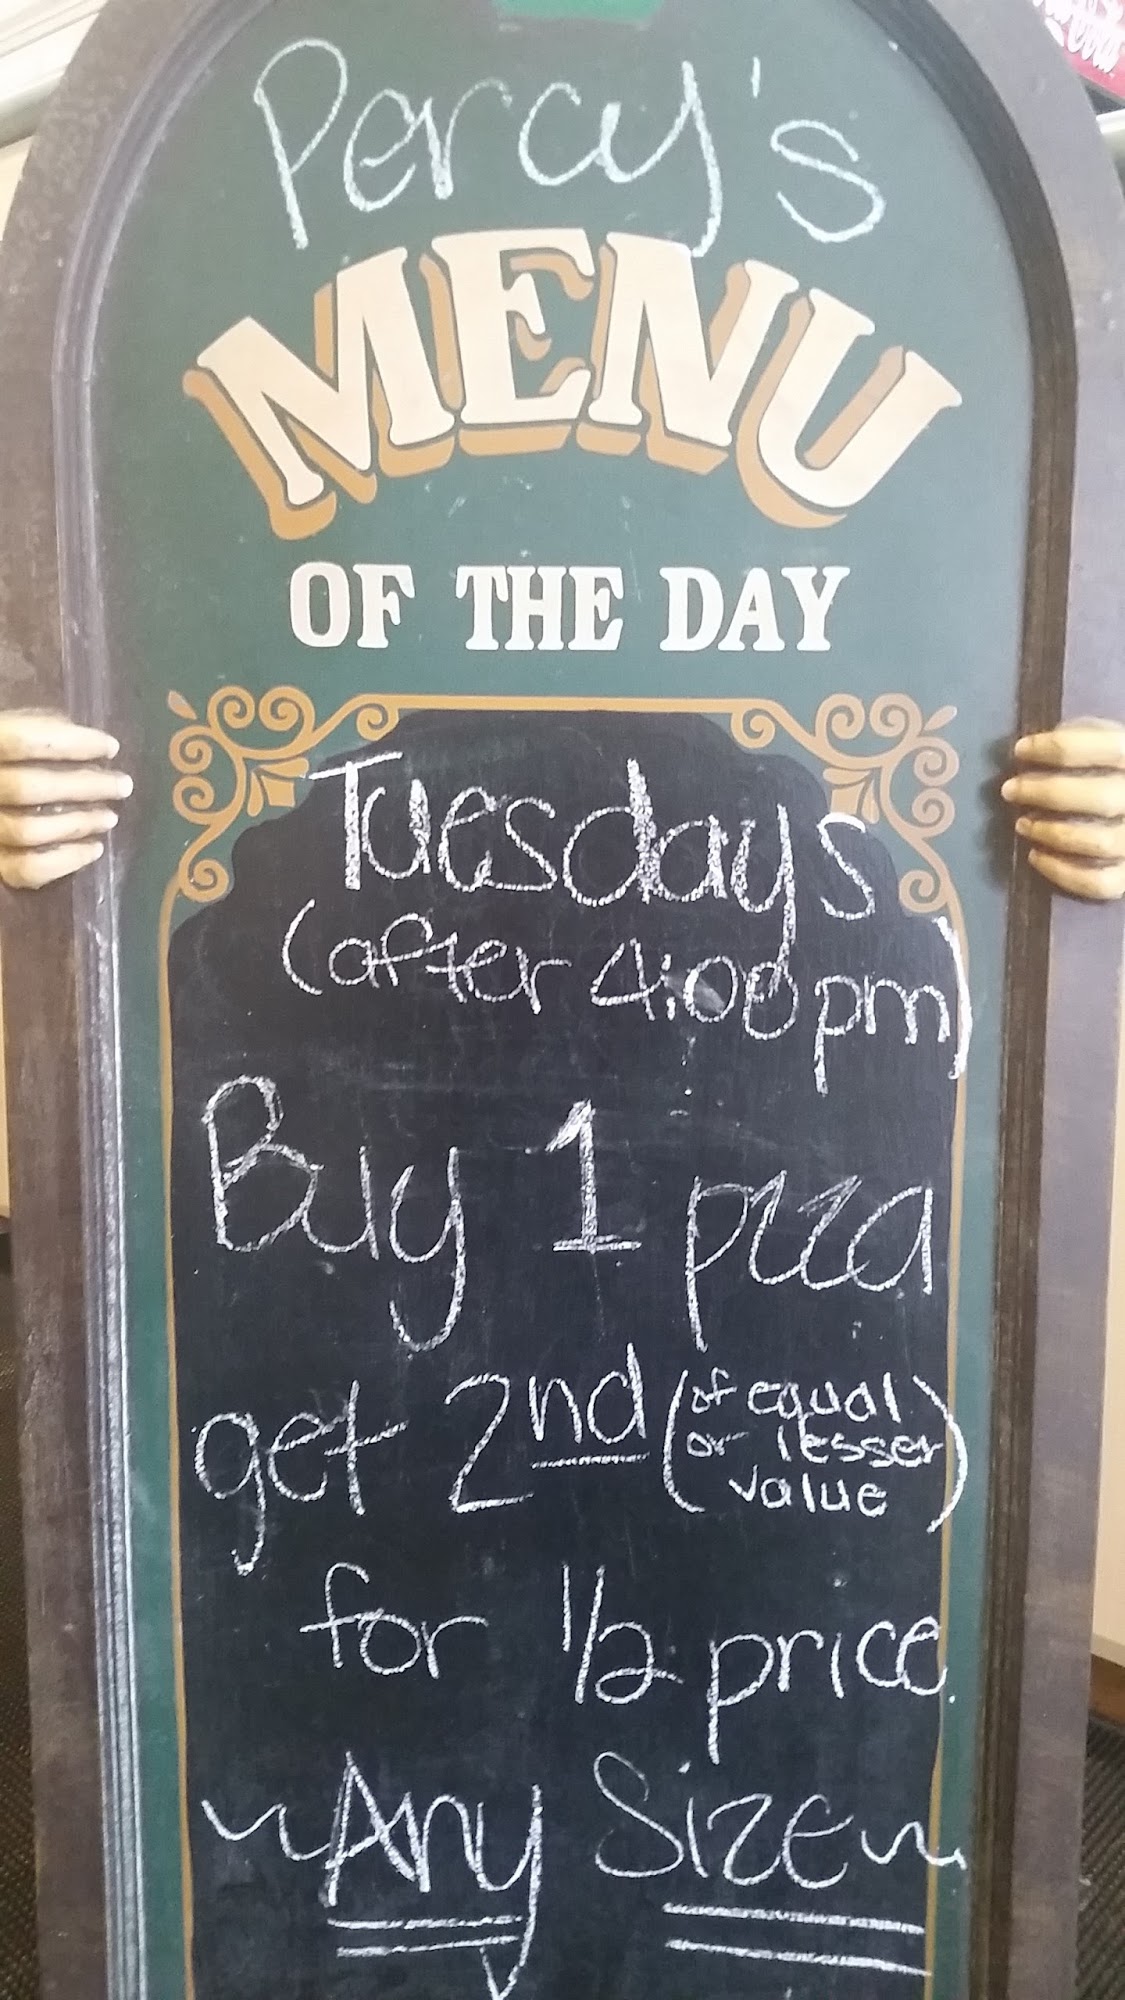 Percy's
MENU
OF THE DAY
Tuesdays
(after 4:00pm)
Buy 1 pizza
get 2nd (of equal
or lesser
value)
for 1/2 price.
~Any Size~